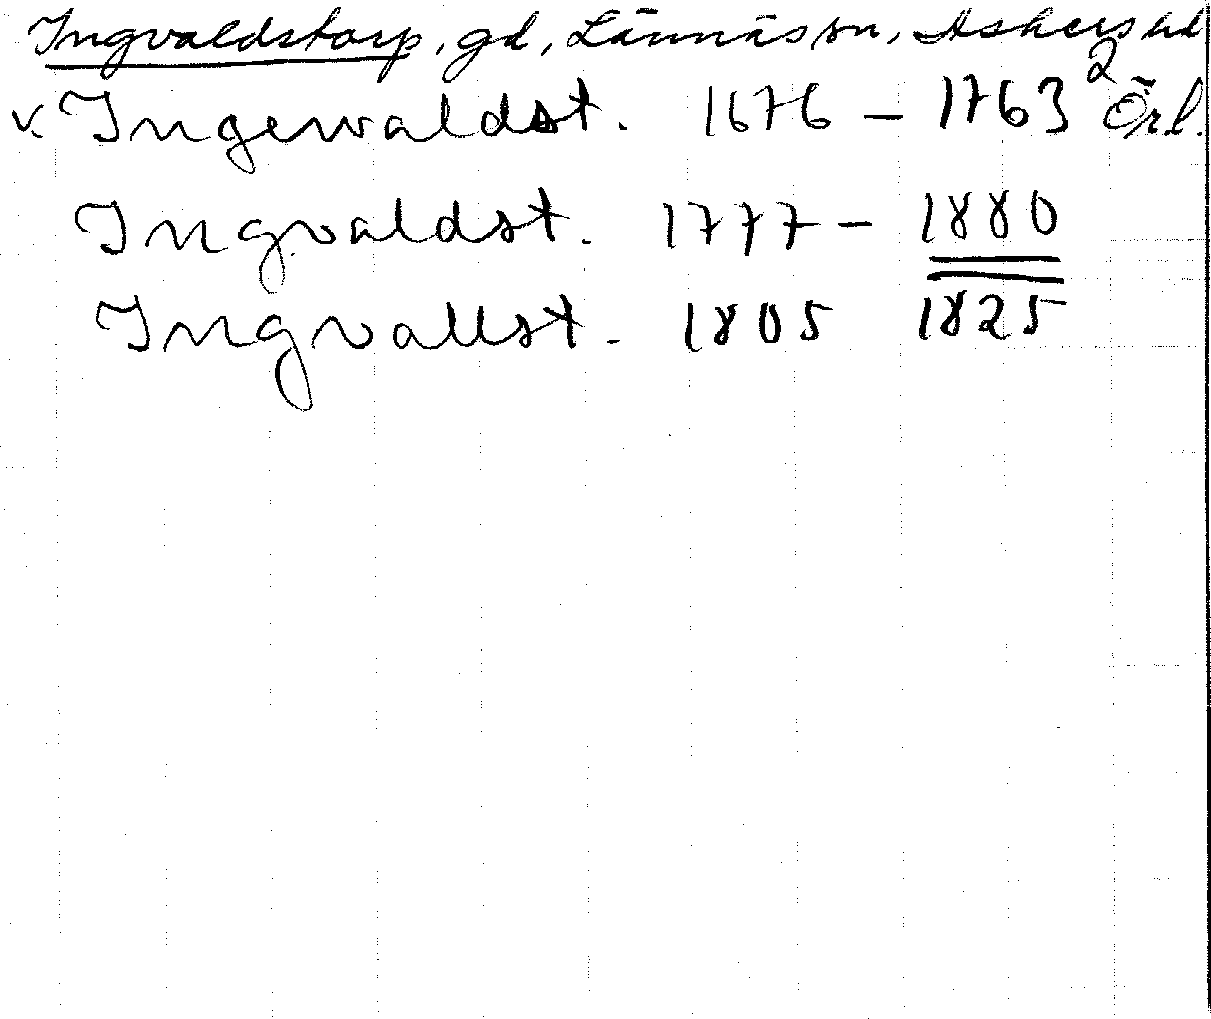 Ingvaldstorp, gd, Lännäs sn, Askers hd
v. Ingewaldst. 1676 – 1763 2 Örl.
Ingvaldst. 1777 – 1880
Ingvallst. 1805 1825